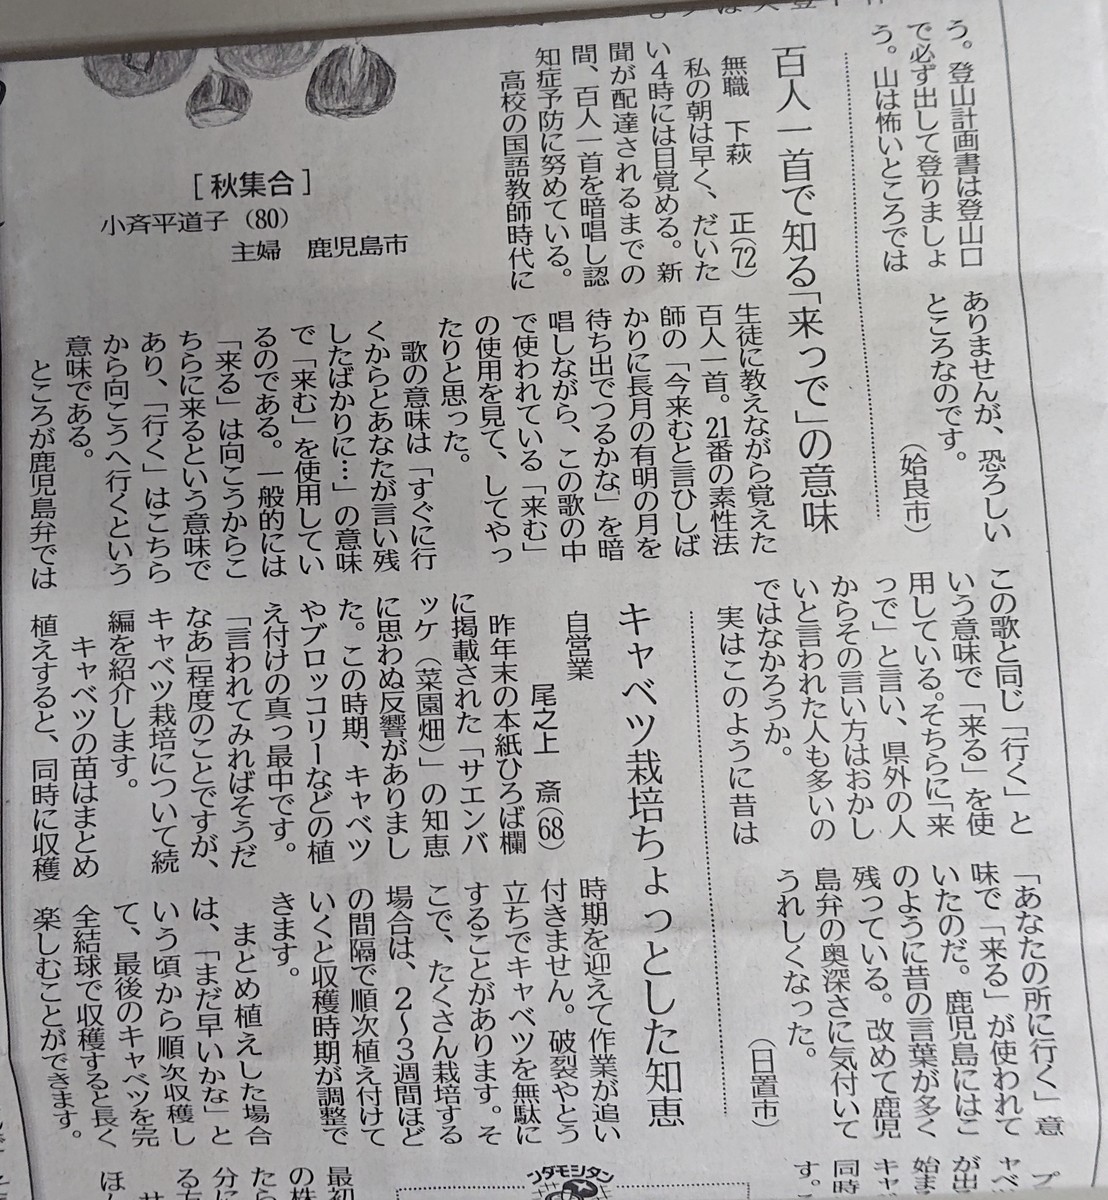 う。登山計画書は登山口
で必ず出して登りましょ
う。山は怖いところでは
ありませんが、恐ろしい
ところなのです。
（姶良市）
百人一首で知る「来っで」の意味
無職　下萩　正(72)
私の朝は早く、だいた
い4時には目覚める。新
聞が配達されるまでの
間、百人一首を暗唱し認
知症予防に努めている。
高校の国語教師時代に
生徒に教えながら覚えた
百人一首。21番の素性法
師の「今来むと言ひしば
かりに長月の有明の月を
待ち出でつるかな」を暗
唱しながら、この歌の中
で使われている「来む」
の使用を見て、してやっ
たりと思った。
歌の意味は「すぐに行
くからとあなたが言い残
したばかりに…」の意味
で「来む」を使用してい
るのである。一般的には
「来る」は向こうからこ
ちらに来るという意味で
あり、「行く」はこちら
から向こうへ行くという
意味である。
ところが鹿児島弁では
この歌と同じ「行く」と
いう意味で「来る」を使
用している。そちらに「来
っで」と言い、県外の人
からその言い方はおかし
いと言われた人も多いの
ではなかろうか。
実はこのように昔は
「あなたの所に行く」意
味で「来る」が使われて
いたのだ。鹿児島にはこ
のように昔の言葉が多く
残っている。改めて鹿児
島弁の奥深さに気付いて
うれしくなった。
（日置市）
[秋集合]
小斉平道子（80）
主婦　鹿児島市
キャベツ栽培ちょっとした知恵
自営業
尾之上　斎(68)
昨年末の本紙ひろば欄
に掲載された「サエンバ
ッケ（菜園畑）」の知恵
に思わぬ反響がありまし
た。この時期、キャベツ
やブロッコリーなどの植
え付けの真っ最中です。
「言われてみればそうだ
なあ」程度のことですが、
キャベツ栽培について続
編を紹介します。
キャベツの苗はまとめ
植えすると、同時に収穫
時期を迎えて作業が追い
付きません。破裂やとう
立ちでキャベツを無駄に
することがあります。そ
こで、たくさん栽培する
場合は、2～3週間ほど
の間隔で順次植え付けて
いくと収穫時期が調整で
きます。
まとめ植えした場合
は、「まだ早いかな」と
いう頃から順次収穫し
て、最後のキャベツを完
全結球で収穫すると長く
楽しむことができます。